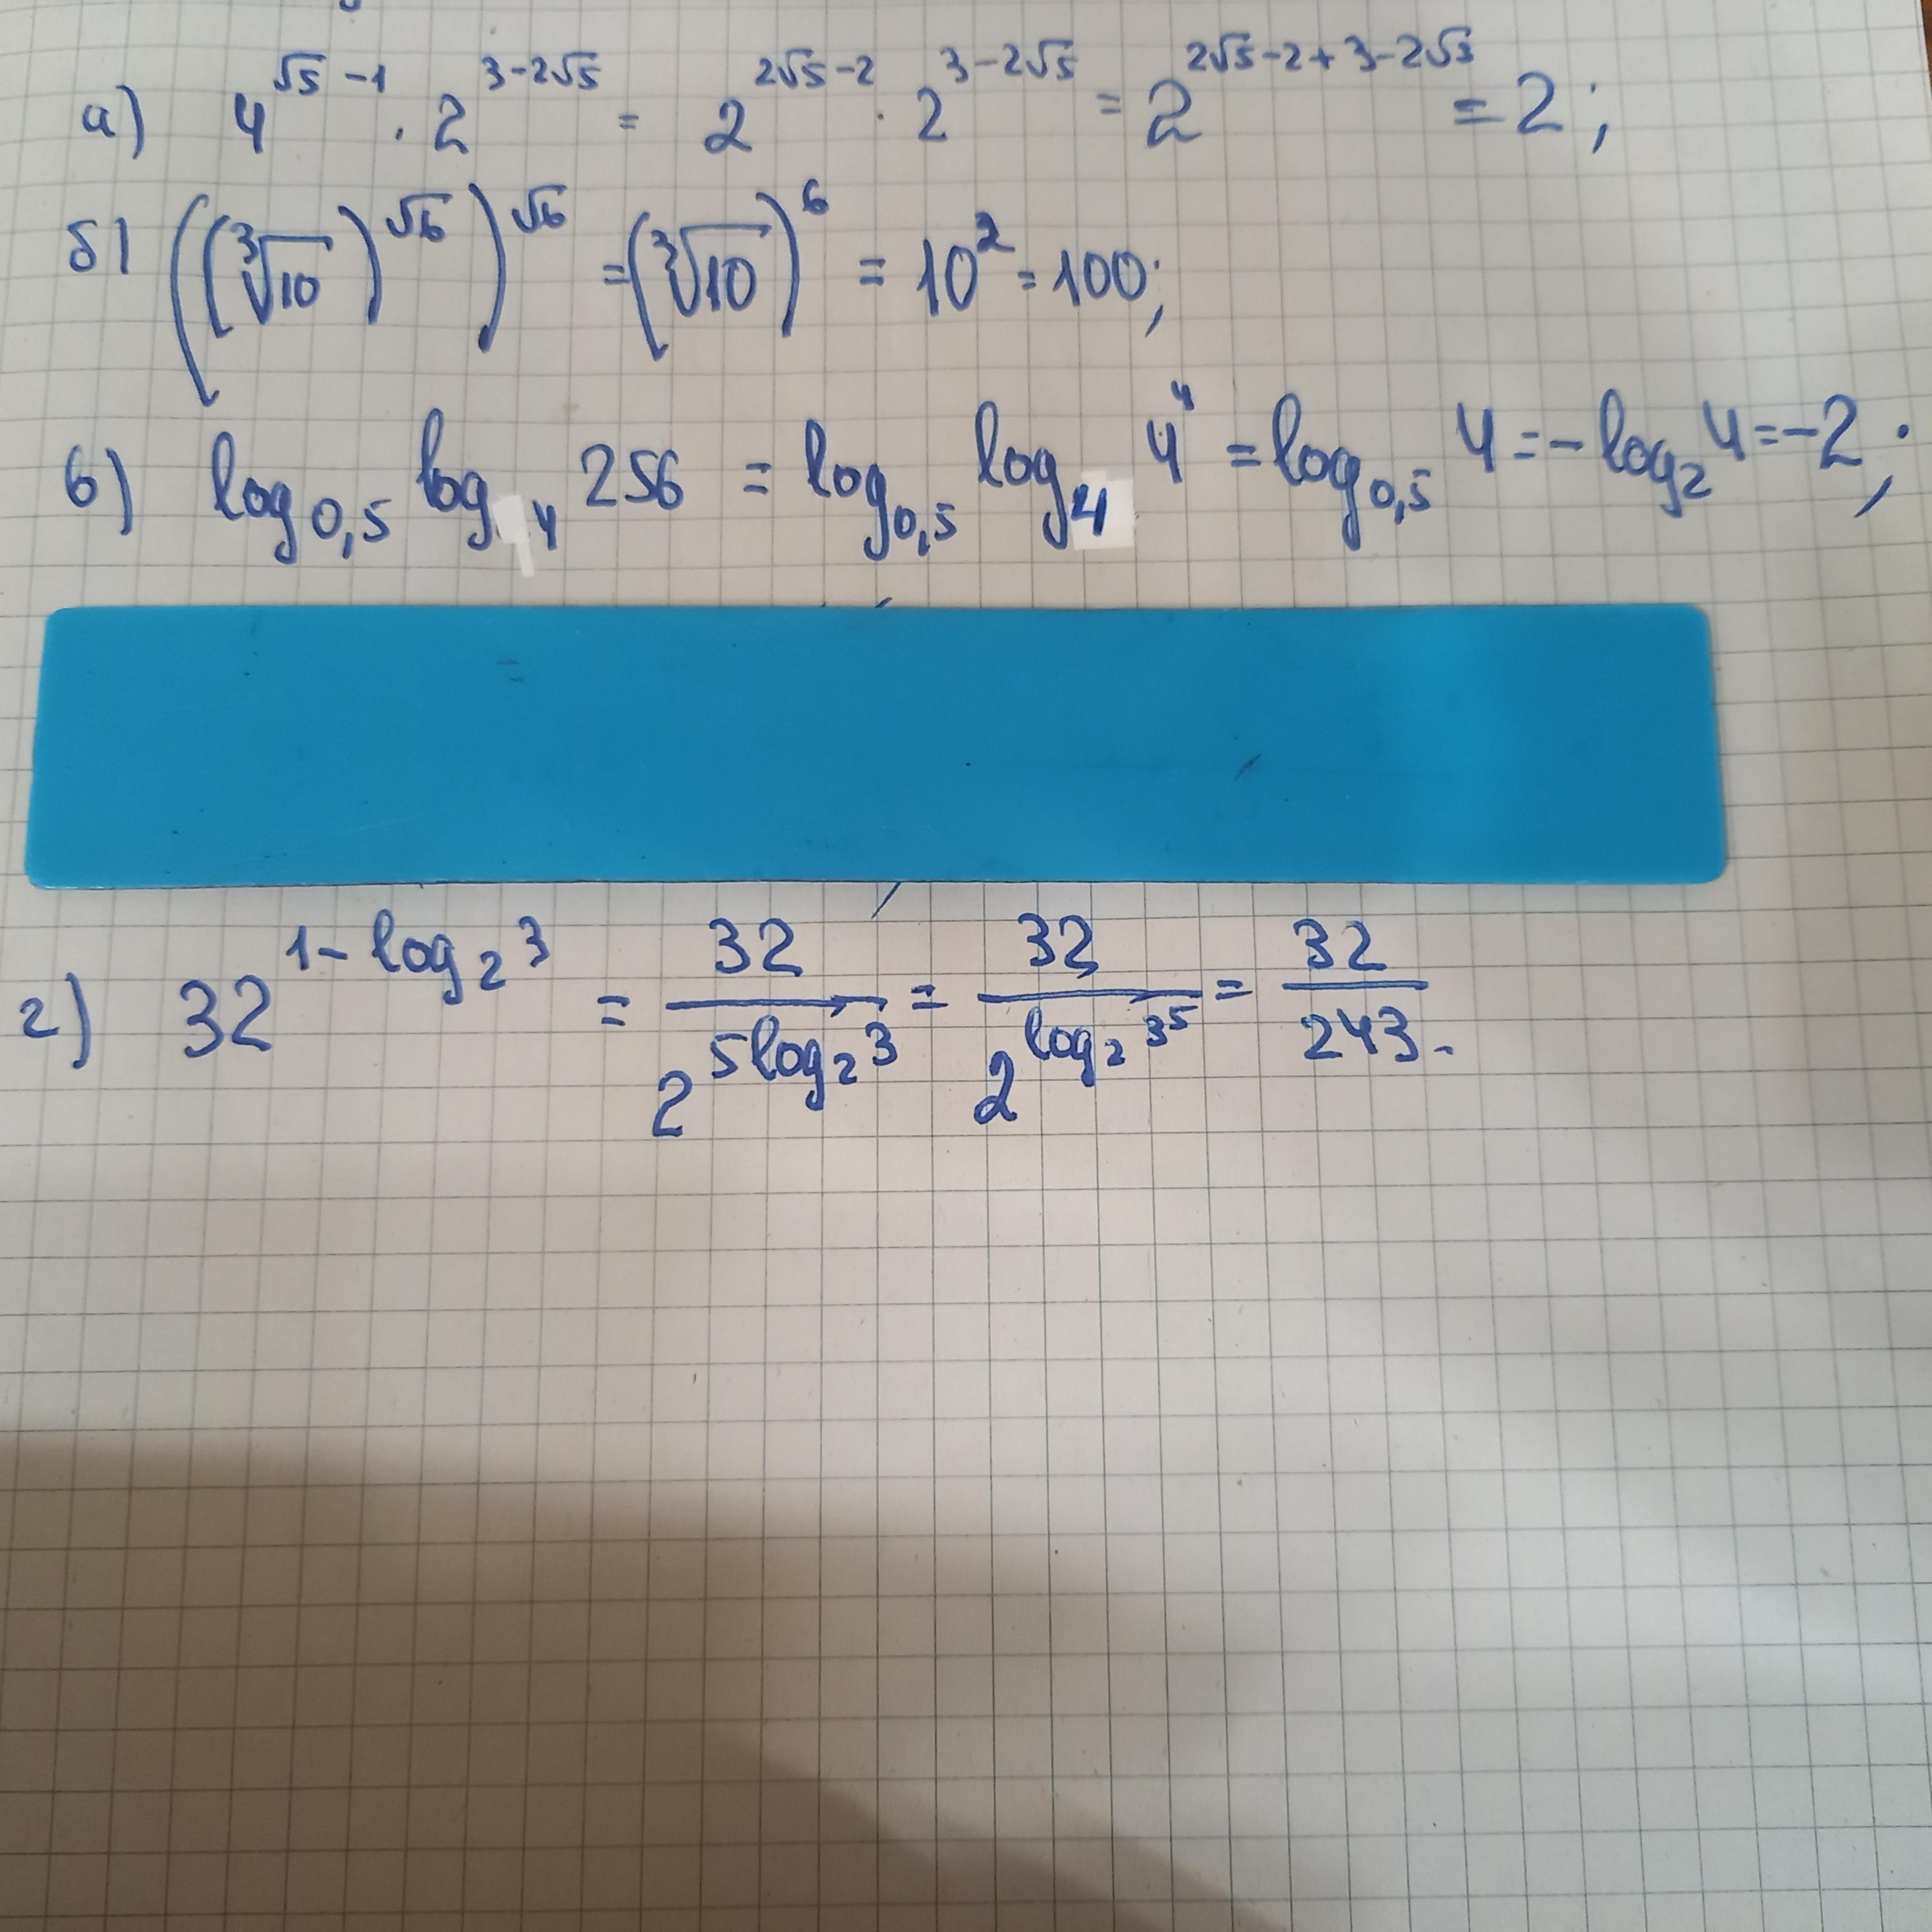 а) 4^(√5 -1) · 2^(3-2√5) = 2^(2√5-2) · 2^(3-2√5) = 2^(2√5-2+3-2√5) = 2;
б) ((∛10)^√6)^√6 = (∛10)^6 = 10^2 = 100;
в) log_0,5 log_4 256 = log_0,5 log_4 4^4 = log_0,5 4 = -log_2 4 = -2;
г) 32^(1-log_2 3) = 32/2^(5log_2 3) = 32/2^(log_2 3^5) = 32/243.